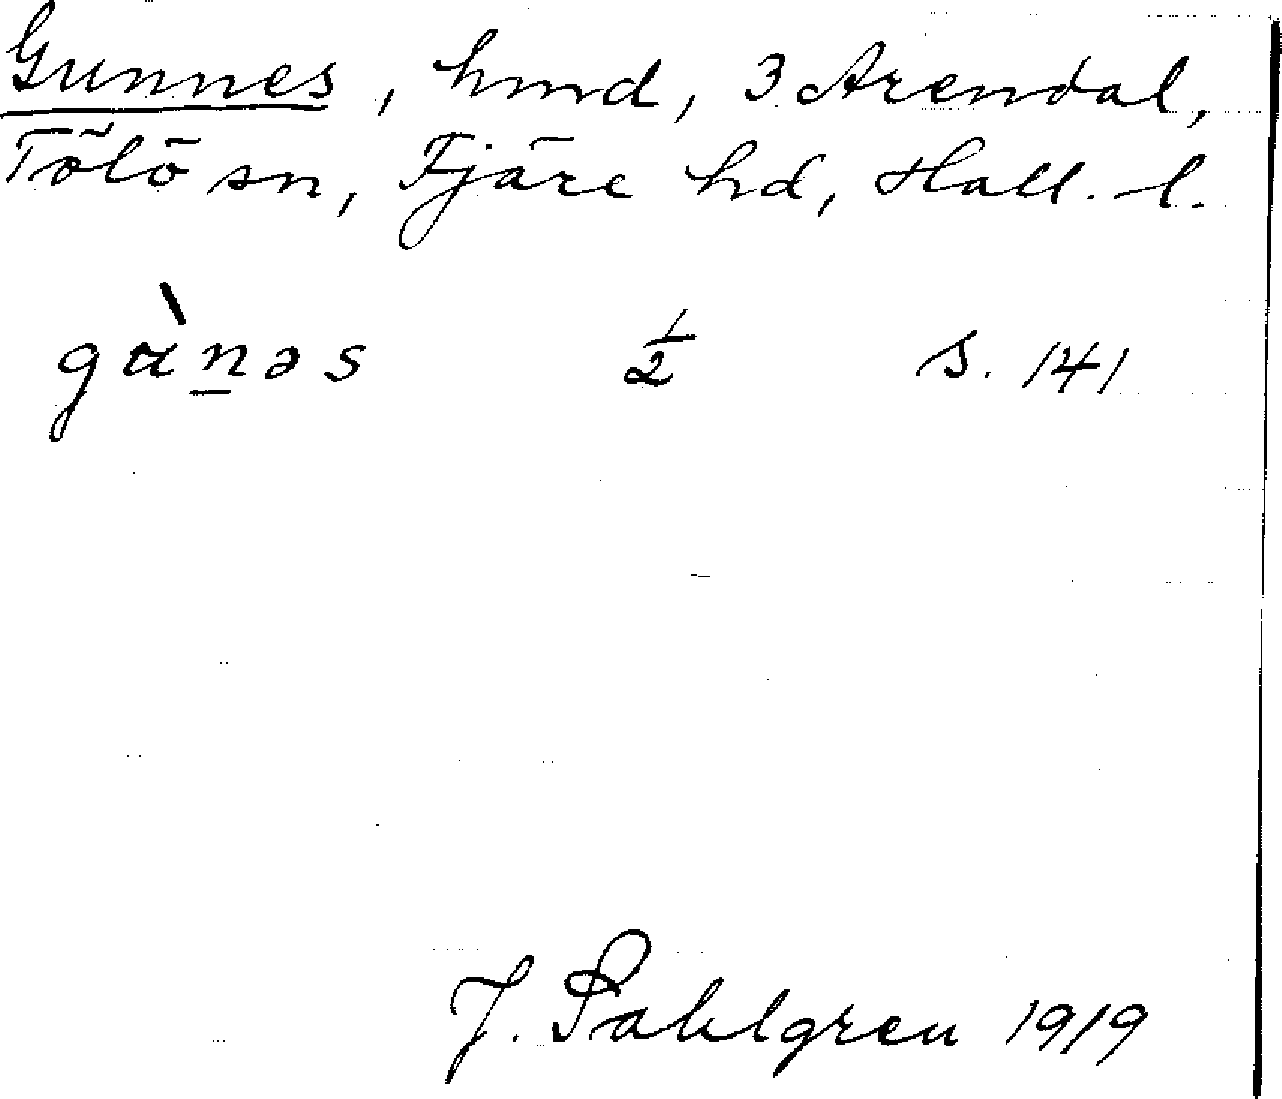 Gunnes, hmd, 3 Arendal,
Tölö sn, Fjäre hd, Hall. l.
gànəs ½ s. 141
J. Sahlgren 1919